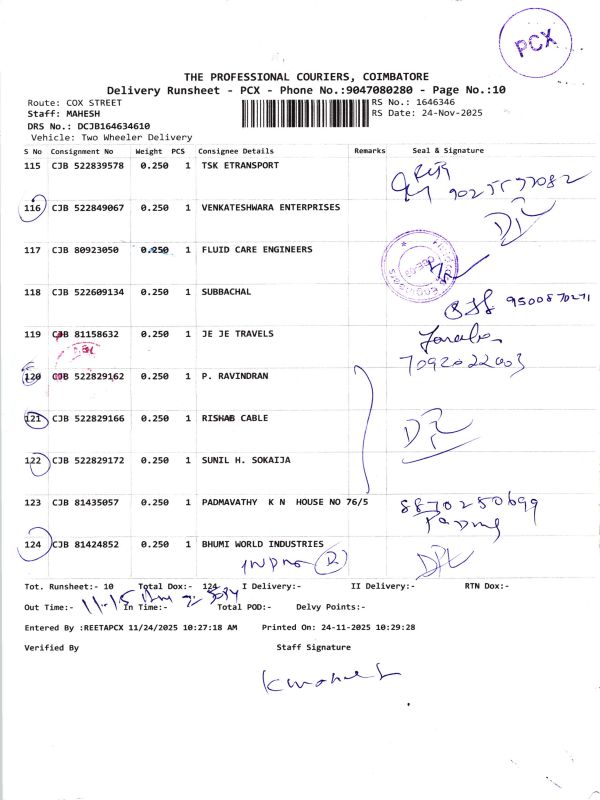 PCX
THE PROFESSIONAL COURIERS, COIMBATORE
Delivery Runsheet - PCX - Phone No.:9047080280 - Page No.:10
Route: COX STREET
RS No.: 1646346
Staff: MAHESH
RS Date: 24-Nov-2025
DRS No.: DCJB164634610
Vehicle: Two Wheeler Delivery
S No Consignment No Weight PCS Consignee Details Remarks Seal & Signature
115 CJB 522839578 0.250 1 TSK ETRANSPORT
9025577082
116 CJB 522849067 0.250 1 VENKATESHWARA ENTERPRISES
117 CJB 80923050 0.250 1 FLUID CARE ENGINEERS
118 CJB 522609134 0.250 1 SUBBACHAL 9500870271
119 CJB 81158632 0.250 1 JE JE TRAVELS
7092022003
120 CJB 522829162 0.250 1 P. RAVINDRAN
121 CJB 522829166 0.250 1 RISHAB CABLE
122 CJB 522829172 0.250 1 SUNIL H. SOKAIJA
123 CJB 81435057 0.250 1 PADMAVATHY K N HOUSE NO 76/5 8870250699
124 CJB 81424852 0.250 1 BHUMI WORLD INDUSTRIES
Tot. Runsheet:- 10 Total Dox:- 124 I Delivery:- II Delivery:- RTN Dox:-
Out Time:- 11.15 In Time:- Total POD:- Delvy Points:-
Entered By :REETAPCX 11/24/2025 10:27:18 AM Printed On: 24-11-2025 10:29:28
Verified By Staff Signature